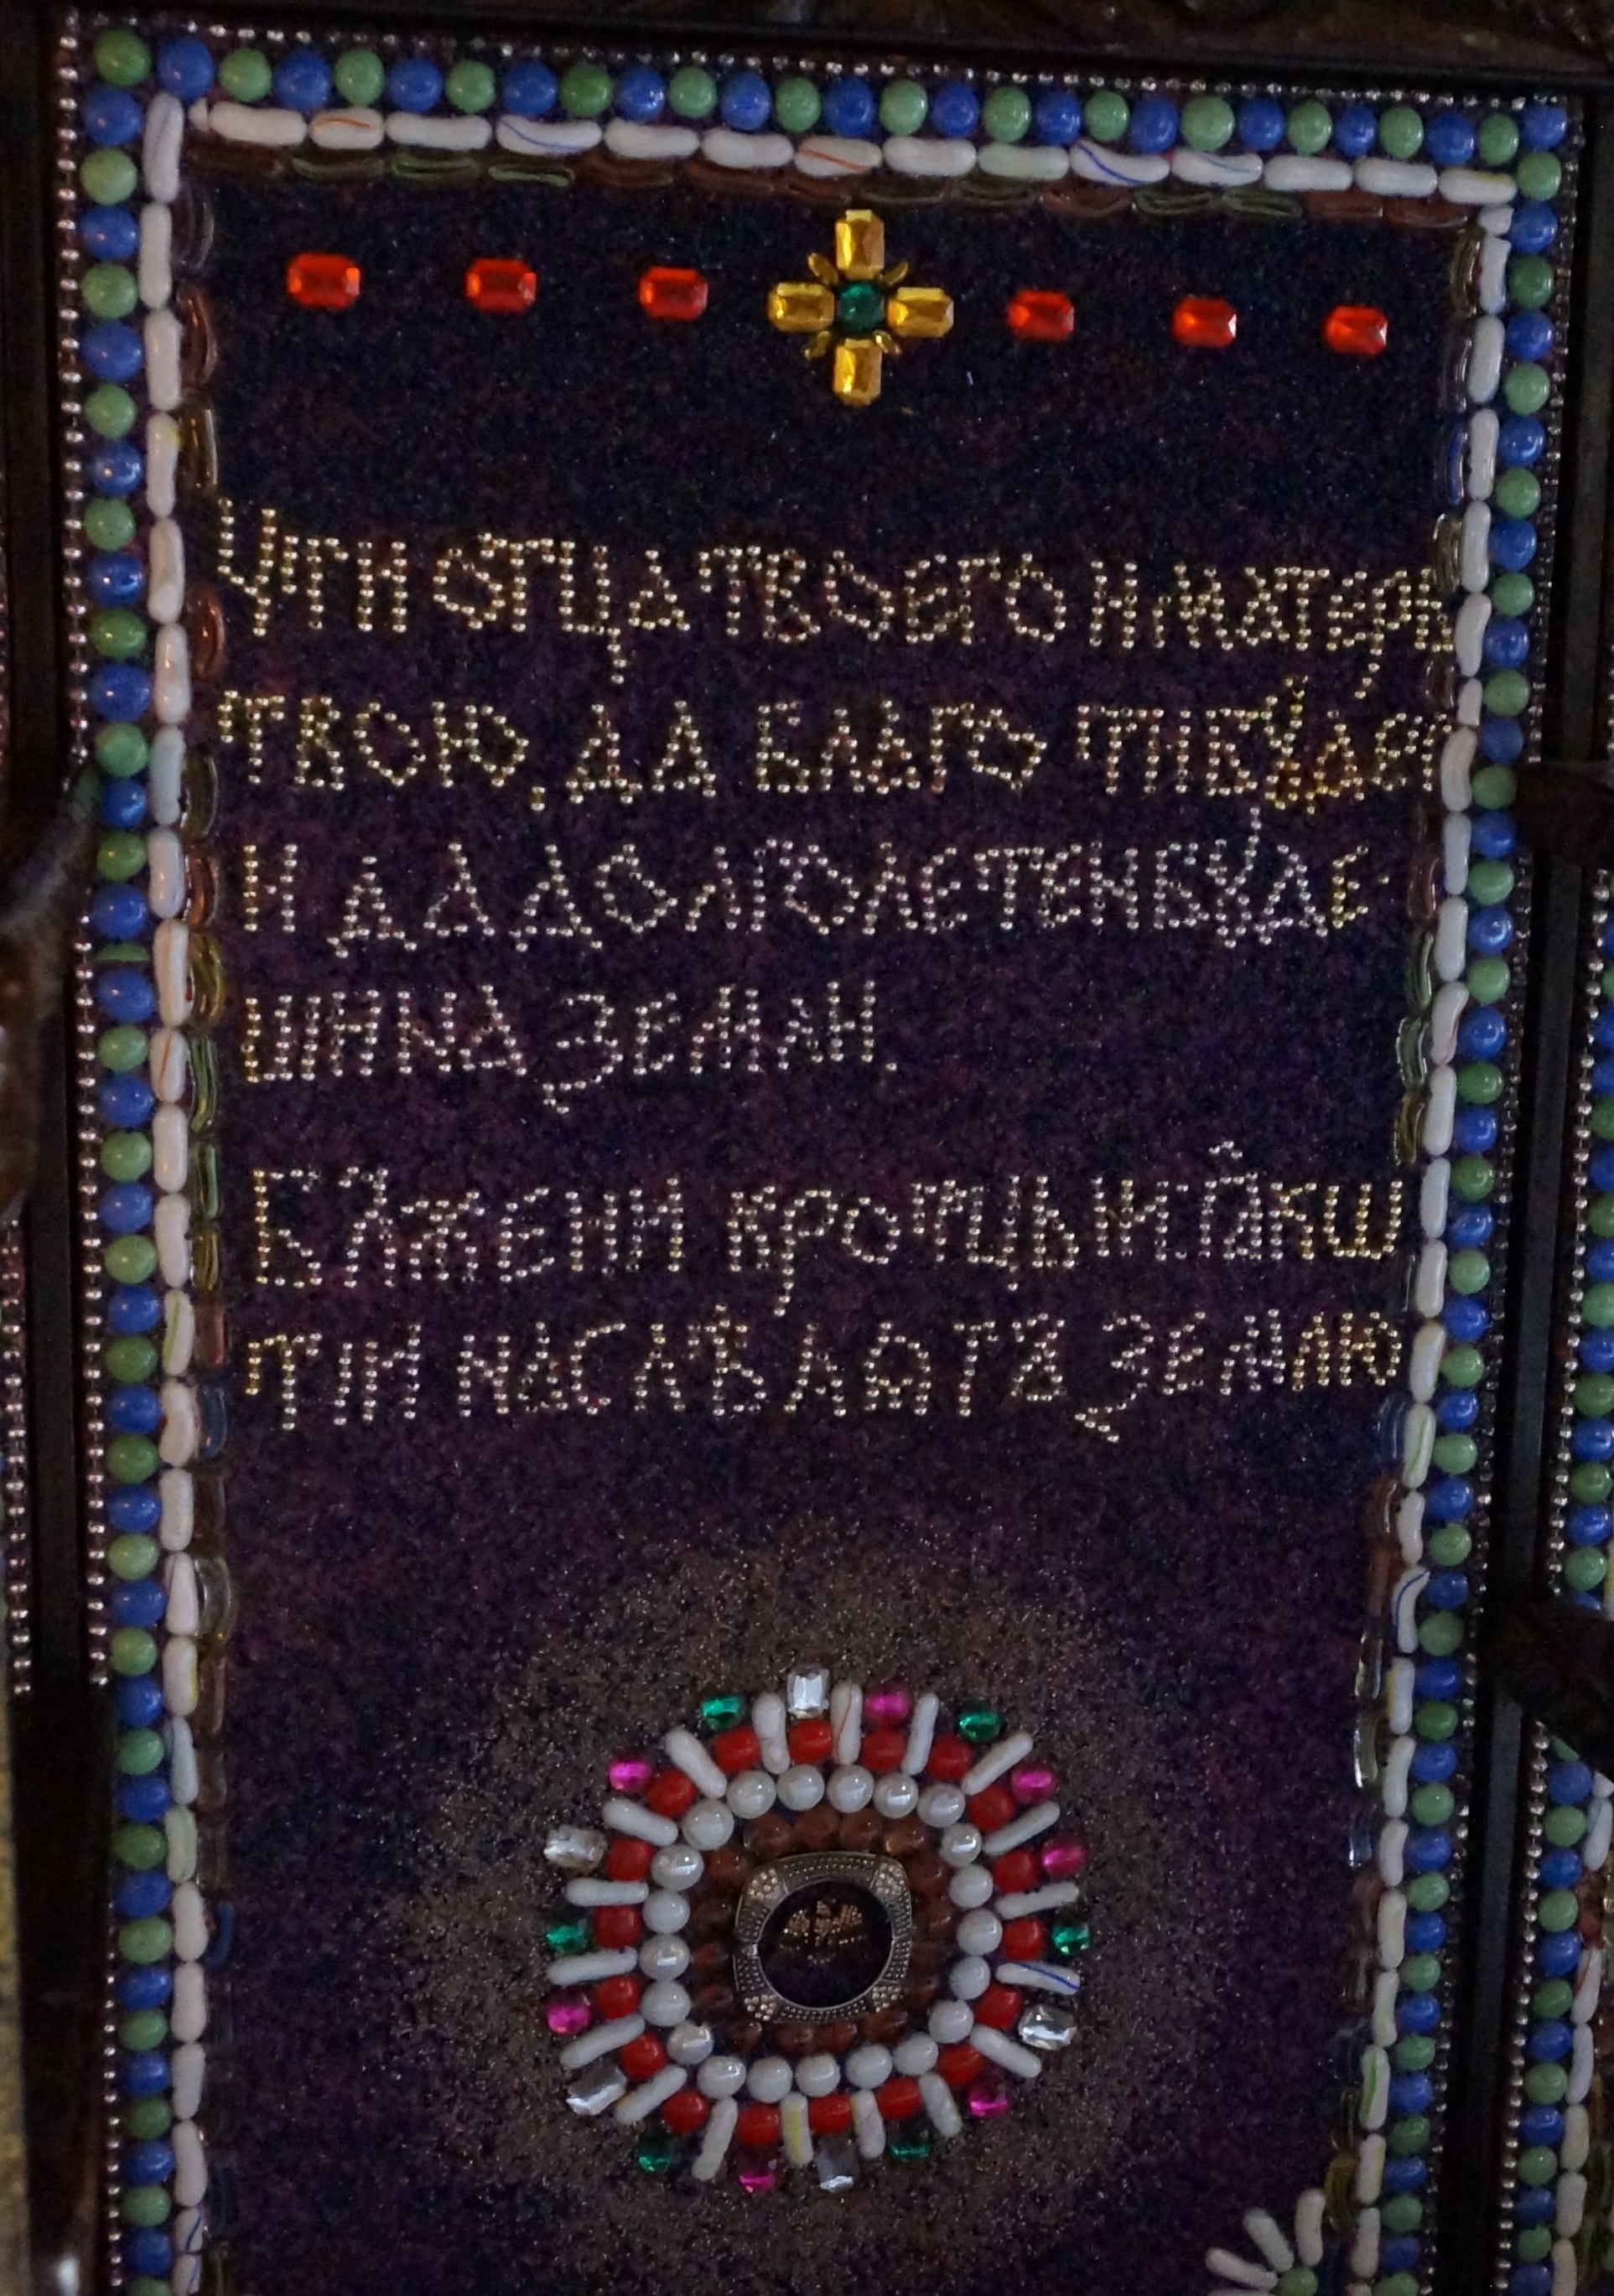 Чти отца твоего и матерь
твою, да благо ти будет
и да долголетен буде
ши на земли.
Блжени кротцыи ꙗкѡ
тіи наслѣдѧтъ землю